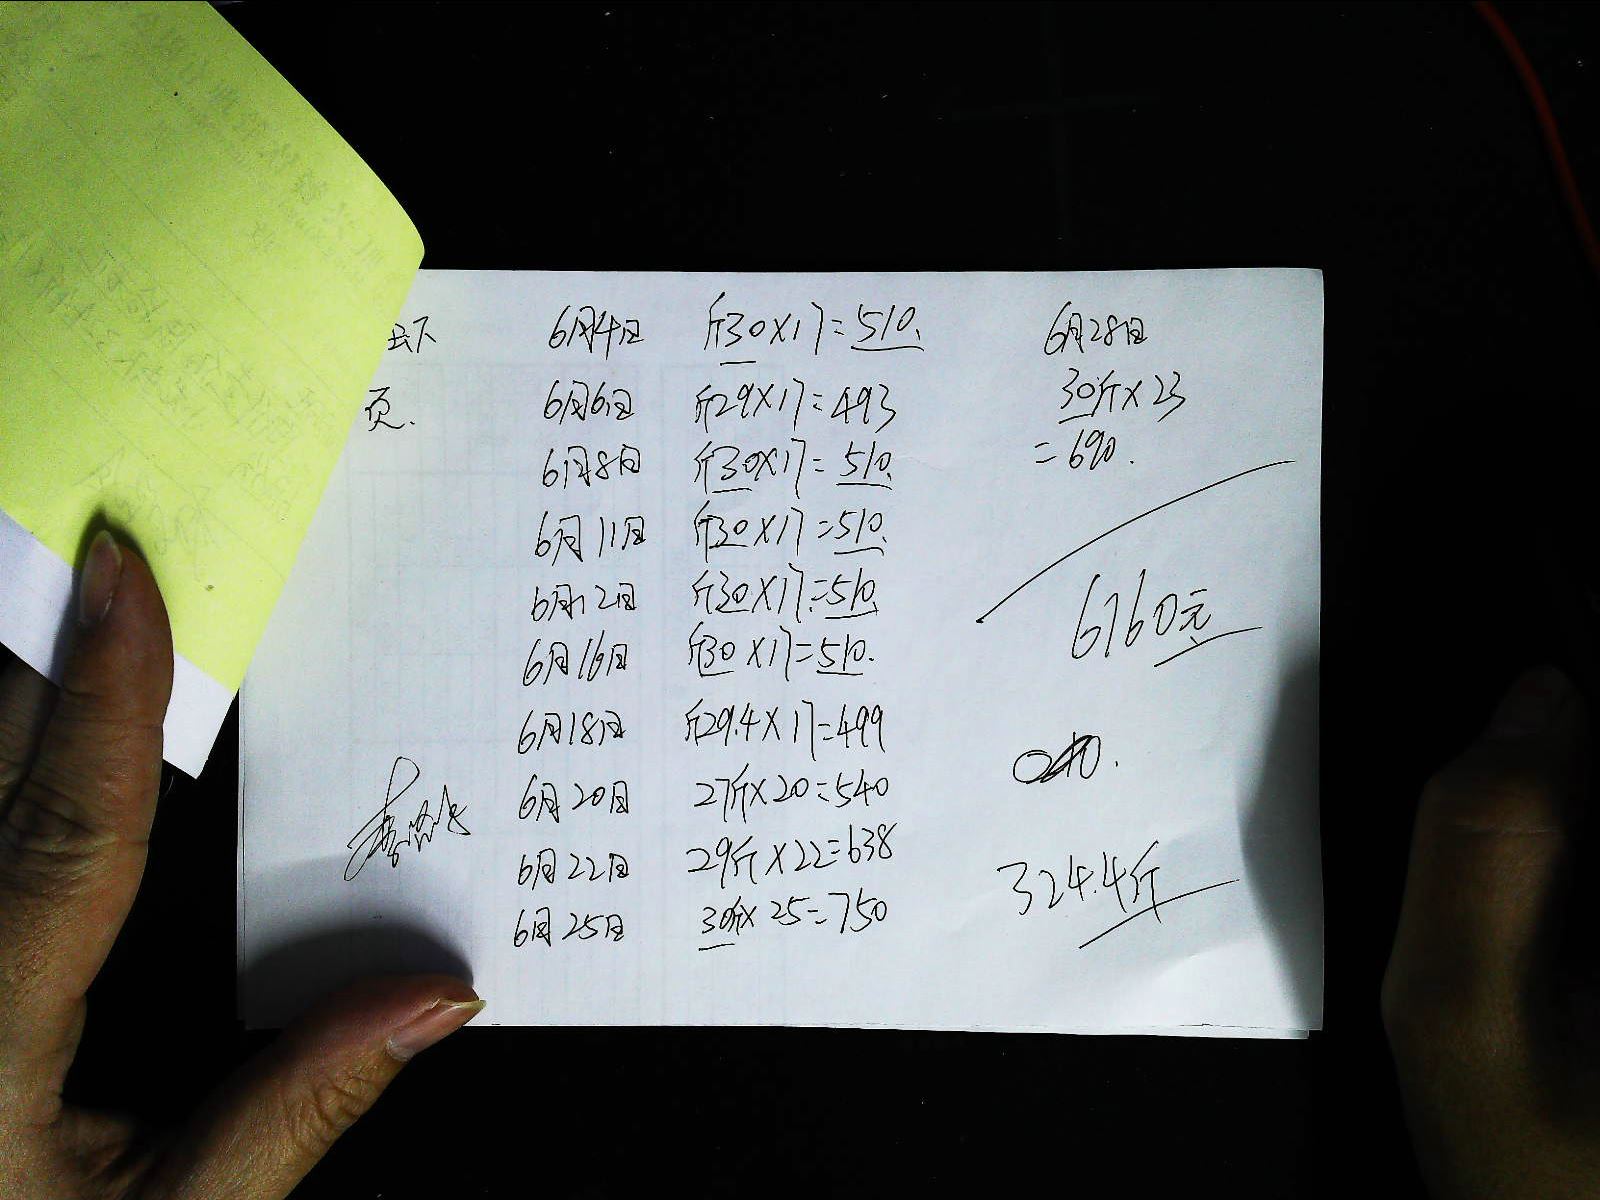 去下
页.
6月4日 斤30×17=510.
6月6日 斤29×17=493
6月8日 斤30×17=510.
6月11日 斤30×17=510.
6月12日 斤30×17=510.
6月16日 斤30×17=510.
6月18日 斤29.4×17=499
6月20日 27斤×20=540
6月22日 29斤×22=638
6月25日 30斤×25=750
6月28日
30斤×23
=690.
6160元
324.4斤